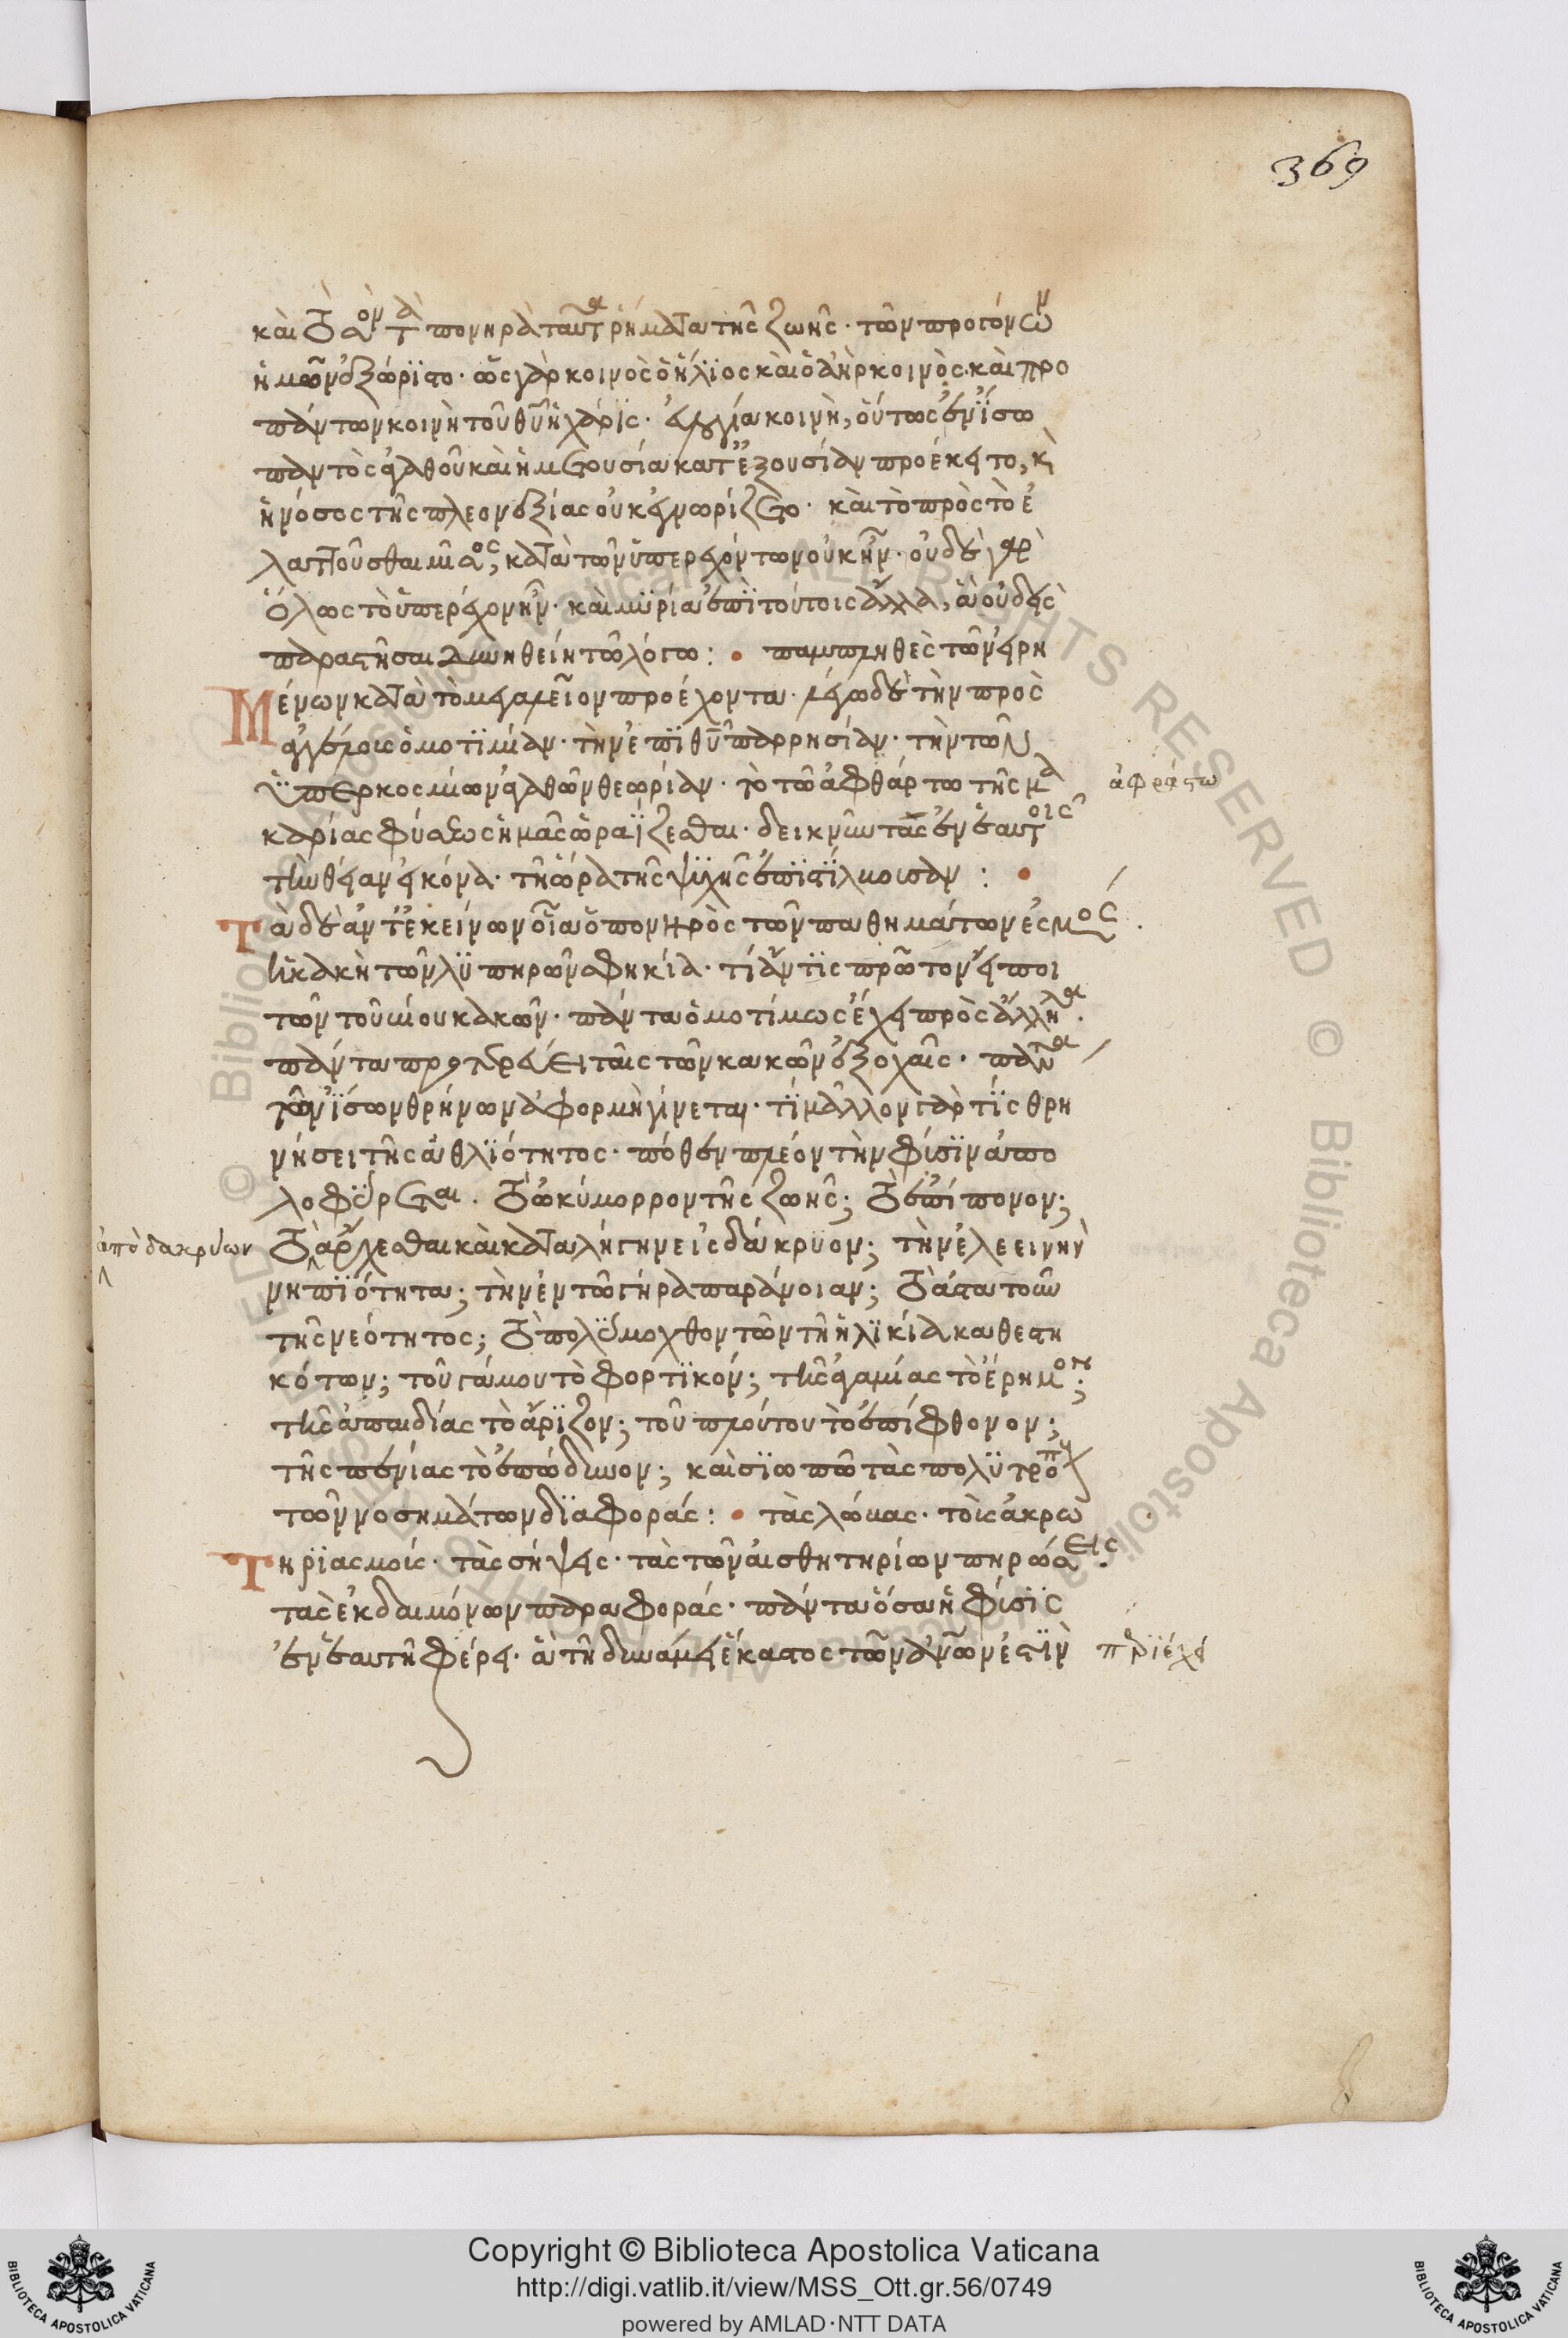 369
καὶ ὅσα τὰ πονηρὰ ταῦτα ῥήματα τῆς ζωῆς· τῶν προγόνων
ἡμῶν ἐξώριστο· ὡς γὰρ κοινὸς ὁ ἥλιος καὶ ὁ ἀὴρ κοινὸς· καὶ προ
πάντων κοινὴ τοῦ θυ ἡ χάρις· εὐλογία κοινὴ, οὕτως ἐν ἴσω
παντὸς ἀγαθοῦ καὶ ἡ μετουσία κατ' ἐξουσίαν προέκειτο, κ
ἡ νόσος τῆς πλεονεξίας οὐκ ἐγνωρίζετο· καὶ τὸ πρὸς τὸ ἐ
λαττοῦσθαι μῖσος, κατὰ τῶν ὑπερεχόντων οὐκ ἦν· οὐδὲ γὰρ
ὅλως τὸ ὑπερέχον ἦν· καὶ μυρία ἐπὶ τούτοις ἄλλα, ἃ οὐδεὶς
παραστῆσαι δυνηθείη τῶ λόγω: παμπληθὲς τῶν εἰρη
Μένων κατὰ τὸ μεγαλεῖον προέχοντα· λέγω δὲ τὴν πρὸς
ἀγγέλους ὁμοτιμίαν· τὴν ἐπὶ θυ παρρησίαν· τὴν τῶν
ὑπερκοσμίων ἀγαθῶν θεωρίαν· τὸ τῶ ἀφθάρτω τῆς μα
ἀφράστω
καρίας φύσεως ἡμᾶς ὡραΐζεσθαι· δεικνύντας ἐν ἑαυτοῖς
τὴν θείαν εἰκόνα· τῆ ὥρα τῆς ψυχῆς ἐπιστίλβουσαν:
Τὰ δὲ ἀντ' ἐκείνων οἷα ὁ πονηρὸς τῶν παθημάτων ἐσμὸς·
ἡ κακὴ τῶν λυπηρῶν σφηκία· τί ἄν τις πρῶτον εἴποι
τῶν τοῦ βίου κακῶν· πάντα ὁμοτίμως ἔχει πρὸς ἄλληλα·
πάντα πρωτεύει ταῖς τῶν κακῶν ἐξοχαῖς· πάντα
τῶν ἴσων θρήνων ἀφορμὴ γίνεται· τί μᾶλλον γάρ τις θρη
νήσει τῆς ἀθλιότητος· πόθεν πλέον τὴν φύσιν ἀπο
λοφύρεται. τὸ ὠκύμορον τῆς ζωῆς; τὸ ἐπίπονον;
ἀπὸ δακρύων
τὸ ἄρχεσθαι καὶ καταλήγειν εἰς δάκρυον; τὴν ἐλεεινὴν
νηπιότητα; τὴν ἐν τῶ γήρα παράνοιαν; τὸ ἄστατον
τῆς νεότητος; τὸ πολύμοχθον τῶν τῆ ἡλικία καθεστη
κότων; τοῦ γάμου τὸ φορτικόν; τῆς ἀγαμίας τὸ ἔρημον;
τῆς ἀπαιδίας τὸ ἄρριζον; τοῦ πλούτου τὸ ἐπίφθονον;
τῆς πενίας τὸ ἐπώδυνον; καὶ σιωπῶ τὰς πολυτρόπους
τῶν νοσημάτων διαφοράς: τὰς λώβας· τοὺς ἀκρω
Τηριασμούς· τὰς σήψεις· τὰς τῶν αἰσθητηρίων πηρώσεις·
τὰς ἐκ δαιμόνων παραφοράς· πάντα ὅσα ἡ φύσις
ἐν ἑαυτῆ φέρει· ἃ τῆ δυνάμει ἕκαστος τῶν ἀνων ἐστὶν
περιέχει
Copyright © Biblioteca Apostolica Vaticana
http://digi.vatlib.it/view/MSS_Ott.gr.56/0749
powered by AMLAD·NTT DATA